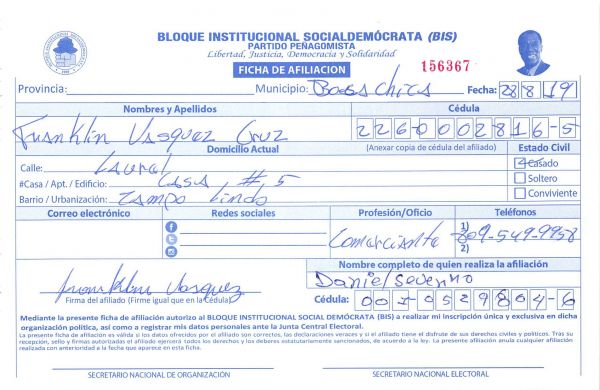 BLOQUE INSTITUCIONAL SOCIALDEMÓCRATA (BIS)
PARTIDO PEÑAGOMISTA
Libertad, Justicia, Democracia y Solidaridad
FICHA DE AFILIACION
156367
Provincia: Municipio: Boca Chica Fecha: 28 8 19
Nombres y Apellidos Cédula
Franklin Vasquez Cruz 2260002816-5
Domicilio Actual (Anexar copia de cédula del afiliado) Estado Civil
Calle: Laurel Casado
#Casa / Apt. / Edificio: CASA # 5 Soltero
Barrio / Urbanización: Campo Lindo Conviviente
Correo electrónico Redes sociales Profesión/Oficio Teléfonos
Comerciante 1) 809-549-9958
2)
Nombre completo de quien realiza la afiliación
Franklin Vasquez Daniel Severino
Firma del afiliado (Firme igual que en la Cédula) Cédula: 001-0529804-6
Mediante la presente ficha de afiliación autorizo al BLOQUE INSTITUCIONAL SOCIAL DEMÓCRATA (BIS) a realizar mi inscripción única y exclusiva en dicha
organización política, así como a registrar mis datos personales ante la Junta Central Electoral.
La presente ficha de afiliación es válida si los datos ofrecidos por el afiliado son correctos, las declaraciones veraces y si el afiliado tiene el disfrute de sus derechos civiles y políticos. Tras su
recepción, sello y firmas autorizadas el afiliado ejercerá todos los derechos y los deberes estatutariamente sancionados, de acuerdo a la ley. La presente afiliación anula cualquier afiliación
realizada con anterioridad a la fecha que aparece en esta ficha.
SECRETARIO NACIONAL DE ORGANIZACIÓN SECRETARIO NACIONAL ELECTORAL